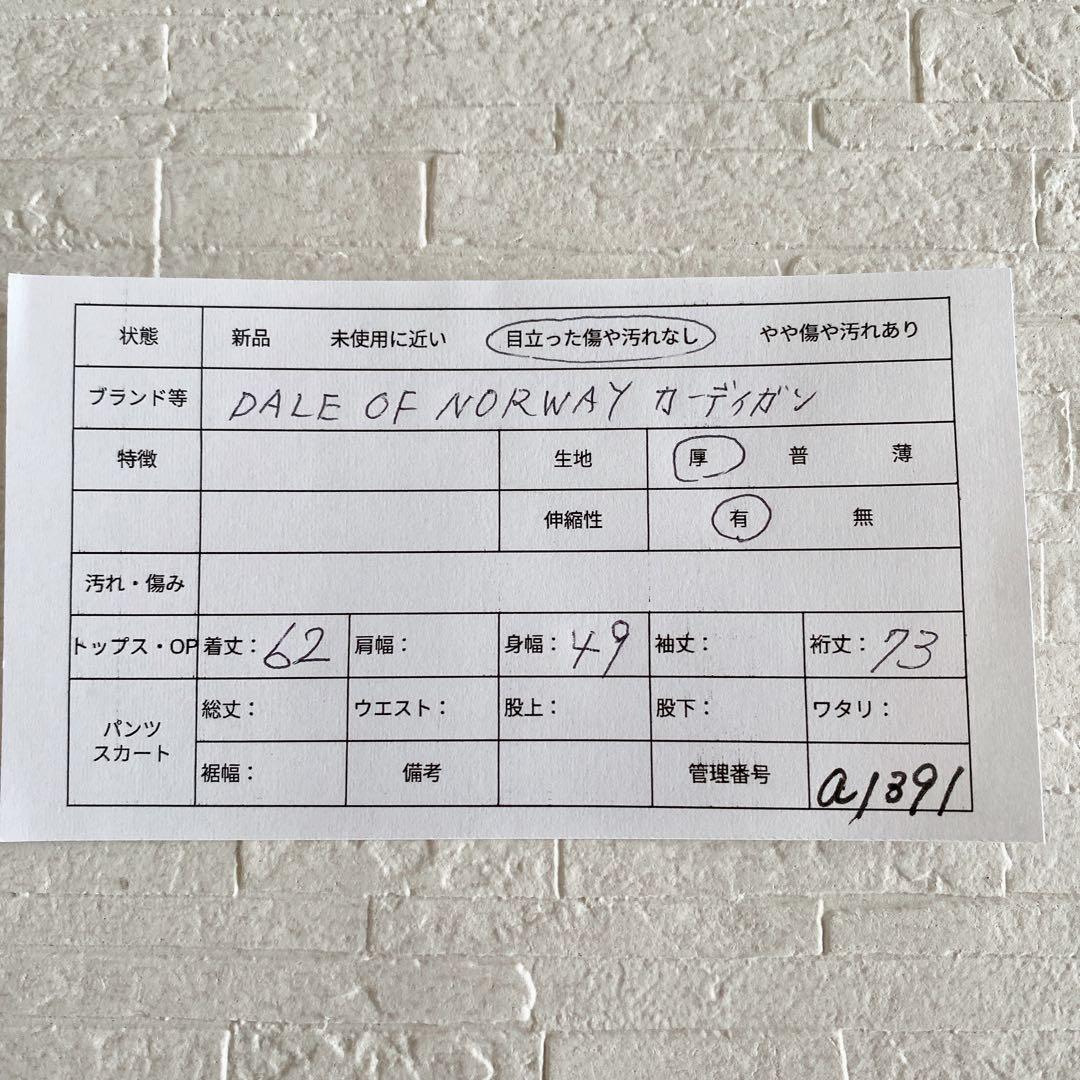 状態 新品 未使用に近い 目立った傷や汚れなし やや傷や汚れあり
ブランド等 DALE OF NORWAY カーディガン
特徴 生地 厚 普 薄
伸縮性 有 無
汚れ・傷み
トップス・OP 着丈：62 肩幅： 身幅：49 袖丈： 裄丈：73
パンツ スカート 総丈： ウエスト： 股上： 股下： ワタリ：
裾幅： 備考 管理番号 a1391